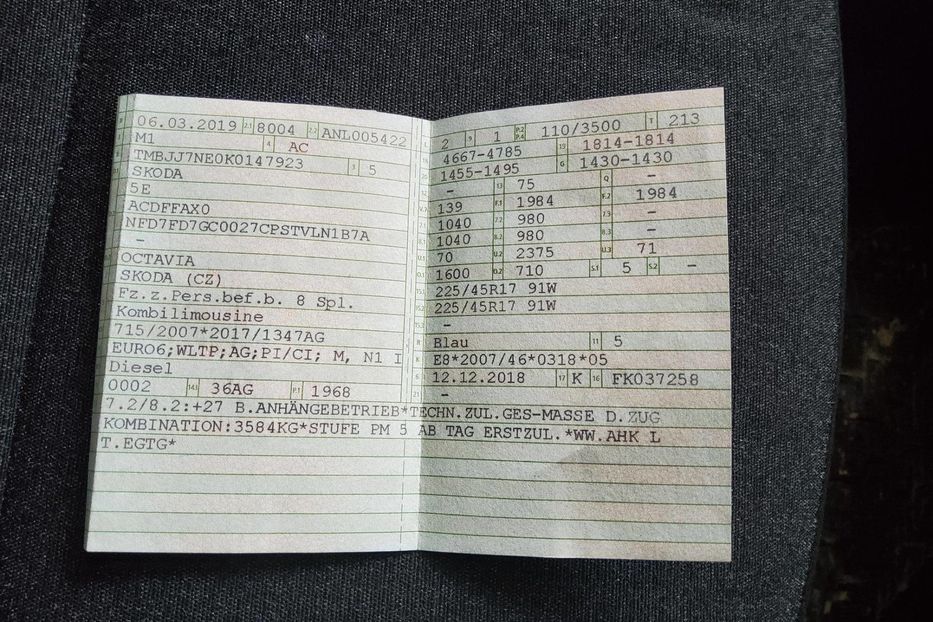 06.03.2019 2.1 8004 2.2 ANL005422
M1 4 AC
TMBJJ7NE0K0147923 3 5
SKODA
5E
ACDFFAX0
NFD7FD7GC0027CPSTVLN1B7A
–
OCTAVIA
SKODA (CZ)
Fz.z.Pers.bef.b. 8 Spl.
Kombilimousine
715/2007*2017/1347AG
EURO6;WLTP;AG;PI/CI; M, N1 I
Diesel
0002 14.1 36AG P.1 1968
2 9 1 P.2 P.4 110/3500 T 213
4667-4785 19 1814-1814
1455-1495 G 1430-1430
– 13 75 Q –
139 F.1 1984 F.2 1984
1040 7.2 980 7.3 –
1040 8.2 980 8.3 –
70 U.2 2375 U.3 71
1600 O.2 710 S.1 5 S.2 –
225/45R17 91W
225/45R17 91W
–
Blau 11 5
E8*2007/46*0318*05
12.12.2018 17 K 16 FK037258
–
7.2/8.2:+27 B.ANHÄNGEBETRIEB*TECHN.ZUL.GES-MASSE D.ZUG
KOMBINATION:3584KG*STUFE PM 5 AB TAG ERSTZUL.*WW.AHK L
T.EGTG*